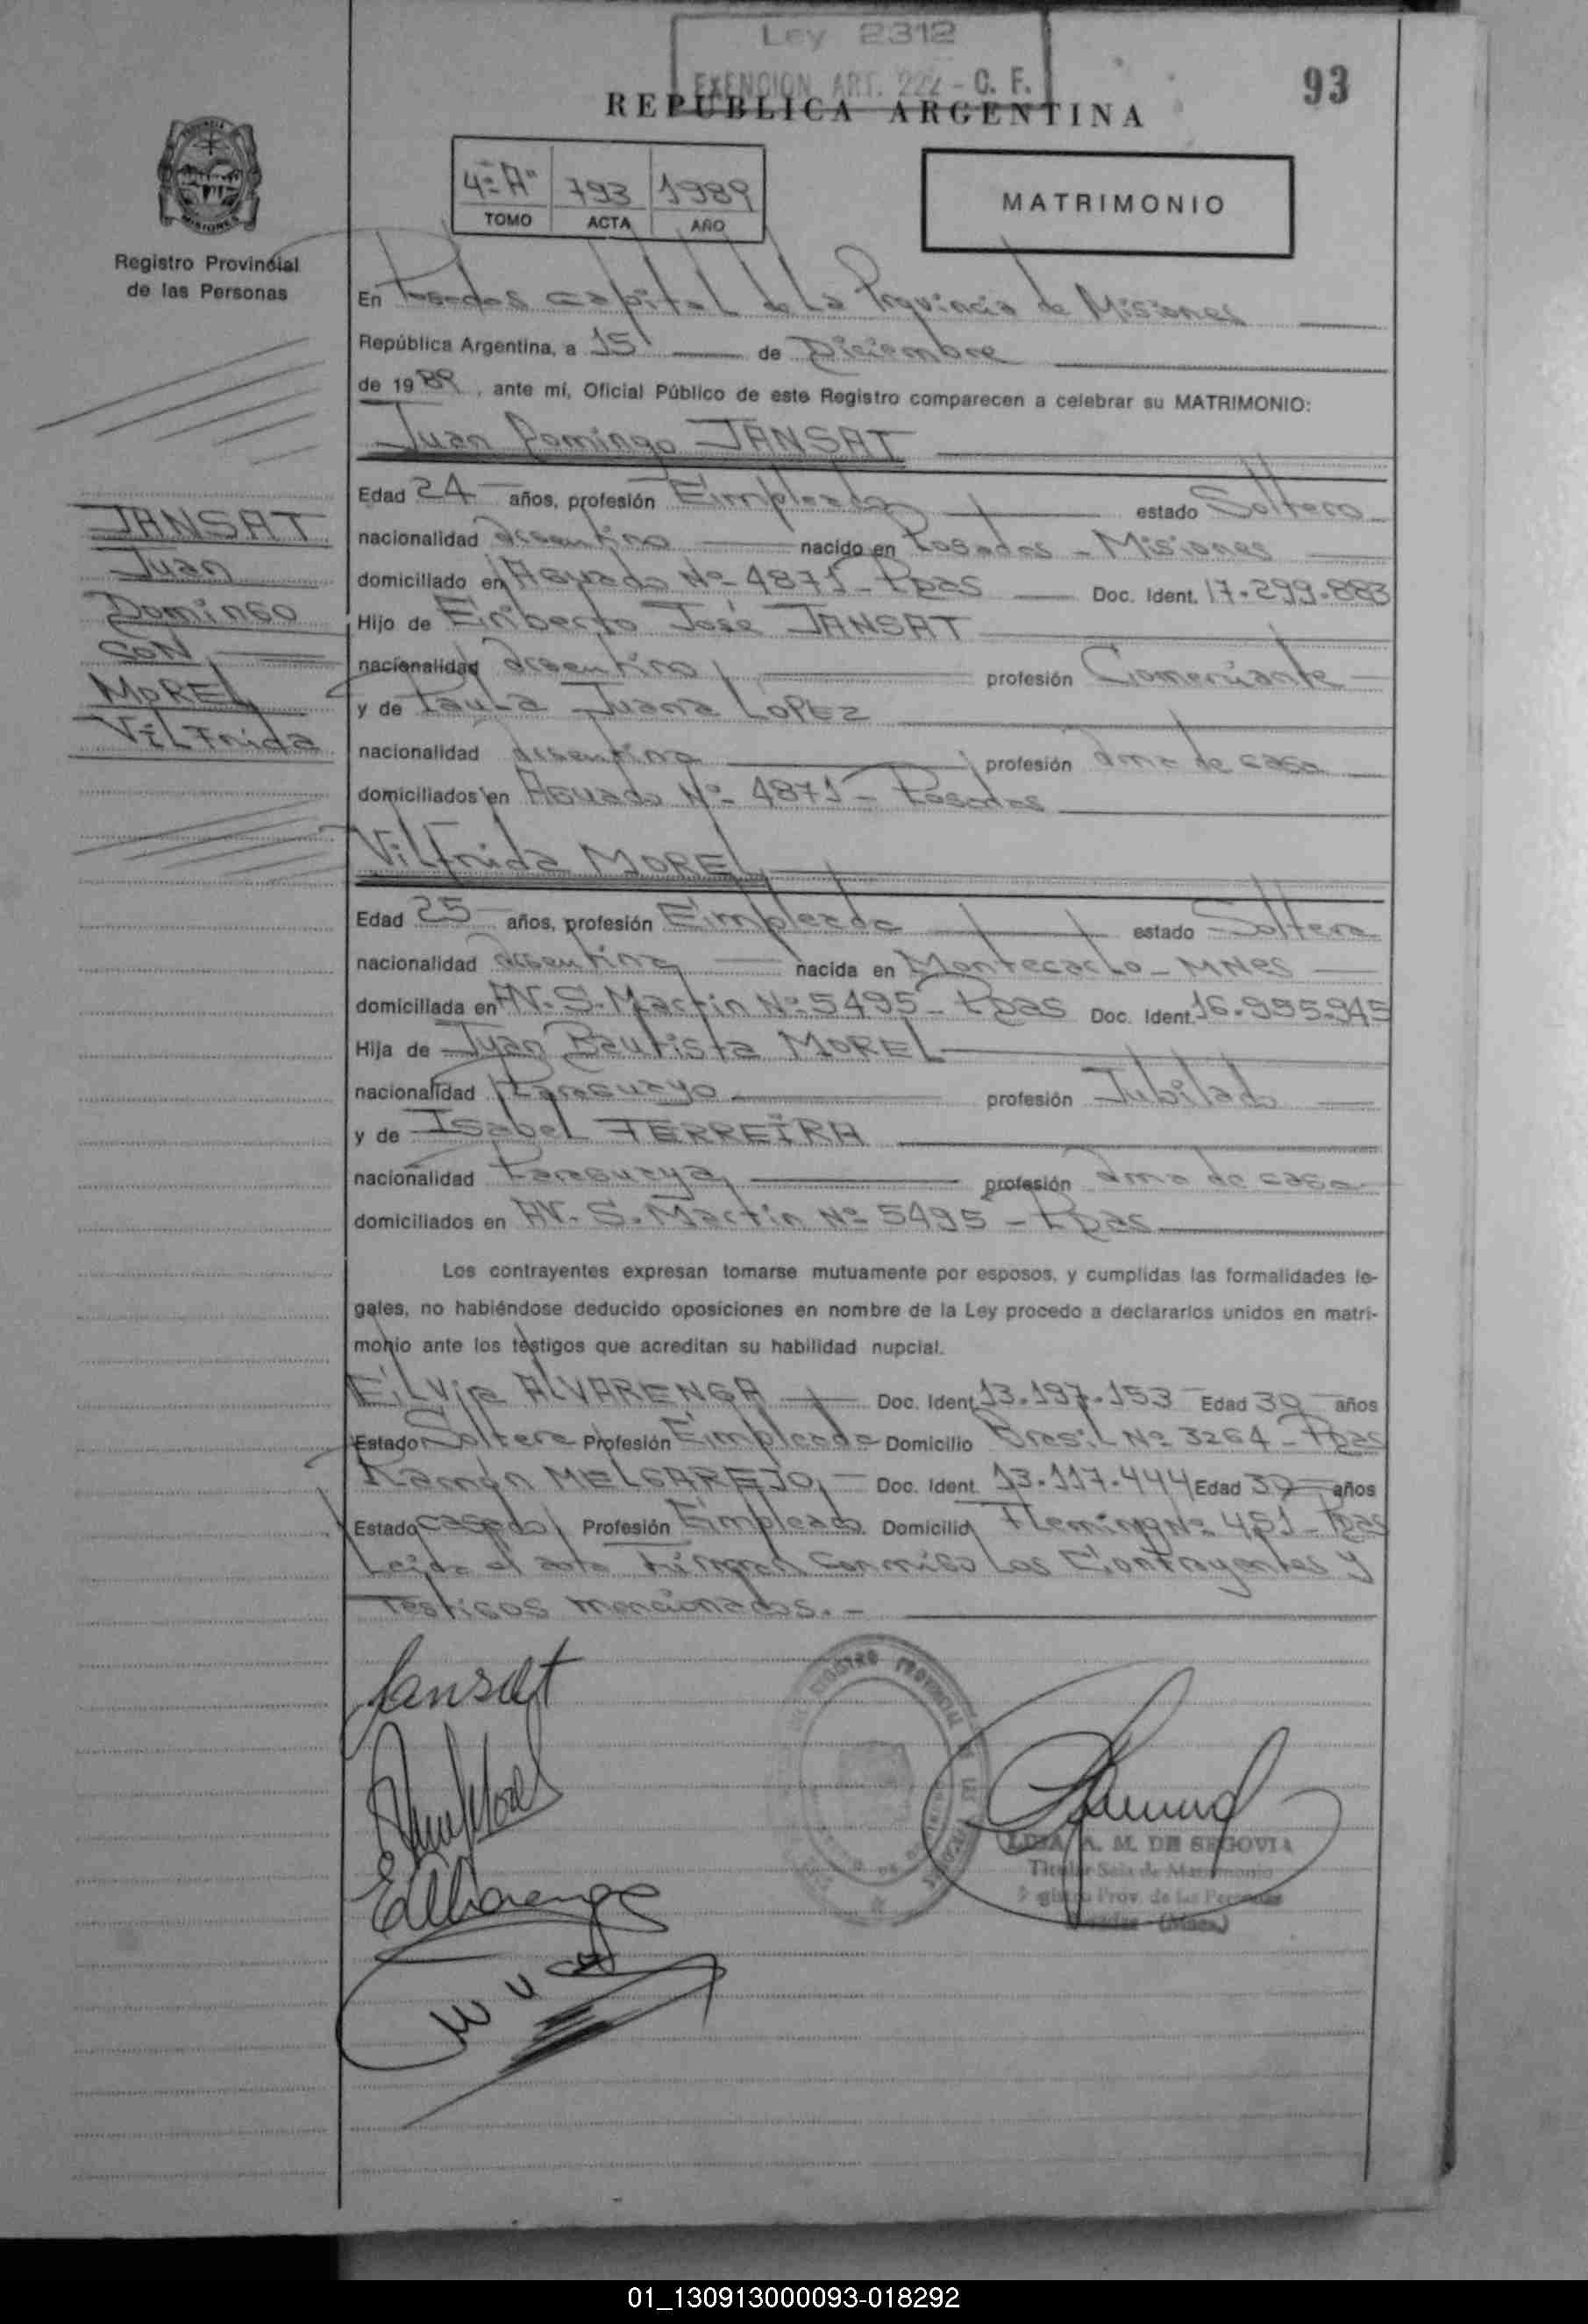 Ley 2312
EXENCION ART. 222 - C. F.
93
REPUBLICA ARGENTINA
4º "A" 793 1989
TOMO ACTA AÑO
MATRIMONIO
MISIONES
Registro Provincial
de las Personas
En Posadas capital de la Provincia de Misiones
República Argentina, a 15 de Diciembre
de 1989, ante mí, Oficial Público de este Registro comparecen a celebrar su MATRIMONIO:
Juan Domingo JANSAT
Edad 24 años, profesión Empleado estado Soltero
nacionalidad argentino nacido en Posadas - Misiones
domiciliado en Aguado Nº 4871 - Pdas Doc. Ident. 17.299.883
Hijo de Eriberto José JANSAT
nacionalidad argentino profesión Comerciante
y de Paula Juana LOPEZ
nacionalidad argentina profesión ama de casa
domiciliados en Aguado Nº 4871 - Posadas
JANSAT
Juan
Domingo
CON
MOREL
Vilfrida
Vilfrida MOREL
Edad 25 años, profesión Empleada estado Soltera
nacionalidad argentina nacida en Montecarlo - MNes
domiciliada en AV. S. Martin Nº 5495 - Pdas Doc. Ident. 16.995.945
Hija de Juan Bautista MOREL
nacionalidad Paraguayo profesión Jubilado
y de Isabel FERREIRA
nacionalidad Paraguaya profesión ama de casa
domiciliados en AV. S. Martin Nº 5495 - Pdas
Los contrayentes expresan tomarse mutuamente por esposos, y cumplidas las formalidades le-
gales, no habiéndose deducido oposiciones en nombre de la Ley procedo a declararlos unidos en matri-
monio ante los testigos que acreditan su habilidad nupcial.
Elvia ALVARENGA Doc. Ident. 13.197.153 Edad 30 años
Estado Soltera Profesión Empleada Domicilio Brasil Nº 3264 - Pdas
Ramón MELGAREJO Doc. Ident. 13.117.444 Edad 30 años
Estado casado Profesión Empleado Domicilio Fleming Nº 451 - Pdas
Leida el acta Firman Conmigo Los Contrayentes y
Testigos mencionados. -
Jansat
EAlvarenga
REGISTRO PROVINCIAL DE LAS PERSONAS
A. M. DE SEGOVIA
Titular Sala de Matrimonio
Registro Prov. de las Personas
Posadas - (Mnes.)
01_130913000093-018292